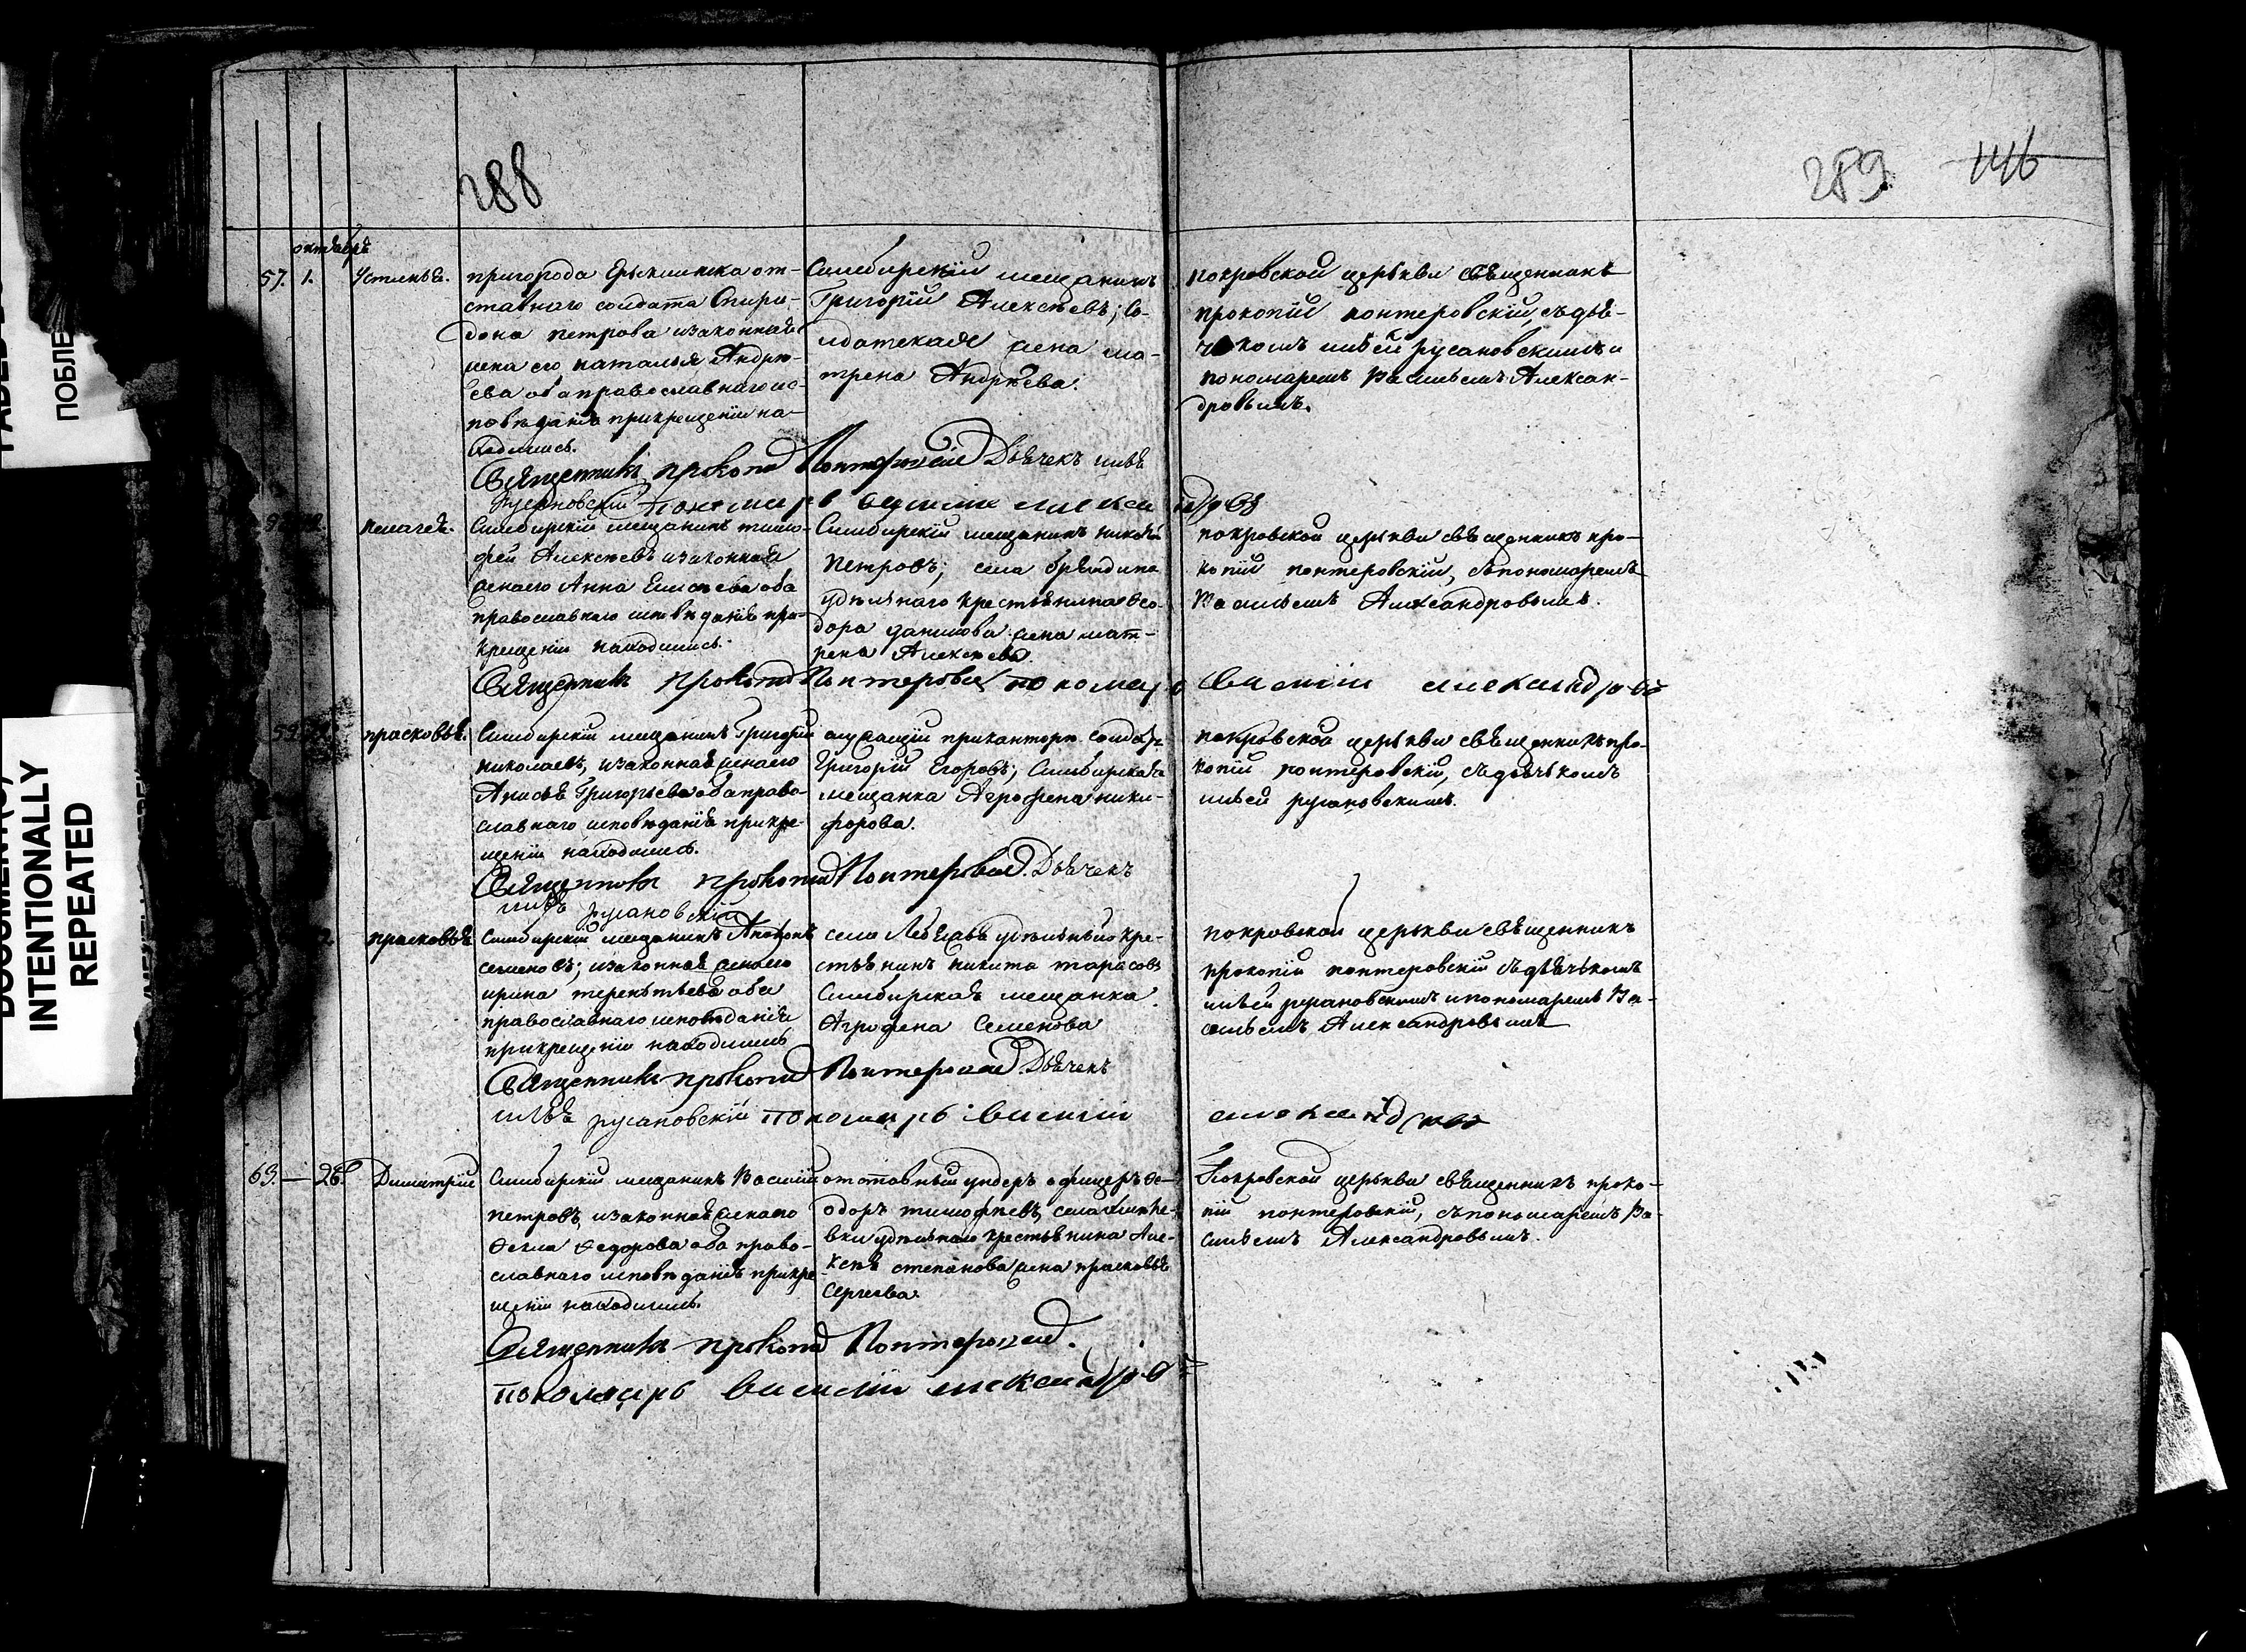 288
289 146
октябрь
57. 1. Устинья.
пригорода Ерыклинска от-
ставнаго солдата Спири-
дона петрова изаконная
жена его наталья Андрѣ-
ева оба православнаго ис-
повѣданія прикрещеніи на-
ходились.
Симбирскій мещанинъ
Григорій Алексѣевъ; Со-
лдатская жена ма-
трена Андрѣева.
покровской церькви священникъ
прокопій понтеровскій, съдья-
чькомъ ильей русановскимъ и
пономаремъ Васильемъ Алексан-
дровымъ.
Священникъ прокопій Понтеровскій Дьячекъ илья
Русановскій пономарь василии александровъ
пелагея.
Симбирскій мещанинъ тимо-
фей Алексѣевъ изаконная
женаего Анна Елисѣева оба
православнаго исповѣданія при-
крещеніи находились.
Симбирскій мещанинъ николай
Петровъ; села брѣндина
удѣльнаго крестьянина Ѳео-
дора данилова жена мат-
рена Алексѣева.
покровской церькви священникъ про-
копій понтеровскій, съпономаремъ
Васильемъ Александровымъ.
Священникъ прокопій Понтеровскій пономарь Василіи александровъ
59. прасковья.
Симбирскій мещанинъ Григорій
николаевъ, изаконная женаего
Анисья Григорьева оба право-
славнаго исповѣданія прикре-
щеніи находились.
служащій приконторѣ солдатъ
Григорій Егоровъ; Симбирская
мещанка Агрофена ники-
форова.
покровской церькви священникъ про-
копій понтеровскій, съдьячькомъ
ильей русановскимъ.
Священникъ прокопій Понтеровскій. Дьячекъ
илья русановскій
прасковья
Симбирскій мещанинъ
семеновъ; изаконная женаего
ирина терентьева оба
православнаго исповѣданія
прикрещеніи находились
села удѣльный кре-
стьянинъ никита тарасовъ
Симбирская мещанка
Агрофена Семенова
покровской церькви священникъ
прокопій понтеровскій съдьячькомъ
ильей русановскимъ ипономаремъ Ва-
сильемъ Александровымъ
Священникъ прокопій Понтеровскій. Дьячекъ
илья русановскій пономарь василіи александровъ
63. — 26. Димитрій
Симбирскій мещанинъ Василій
петровъ, изаконная женаего
Ѳекла Ѳедорова оба право-
славнаго исповѣданія прикре-
щеніи находились.
отставный ундеръ офицеръ Ѳе-
одоръ тимофѣевъ, села
вки удѣльнаго крестьянина Але-
ксѣя степанова жена прасковья
Сергеева.
Покровской церькви священникъ проко-
пій понтеровскій, съпономаремъ Ва-
сильемъ Александровымъ.
Священникъ прокопій Понтеровскій.
пономарь василіи александровъ
ПОБЛЕ
INTENTIONALLY
REPEATED